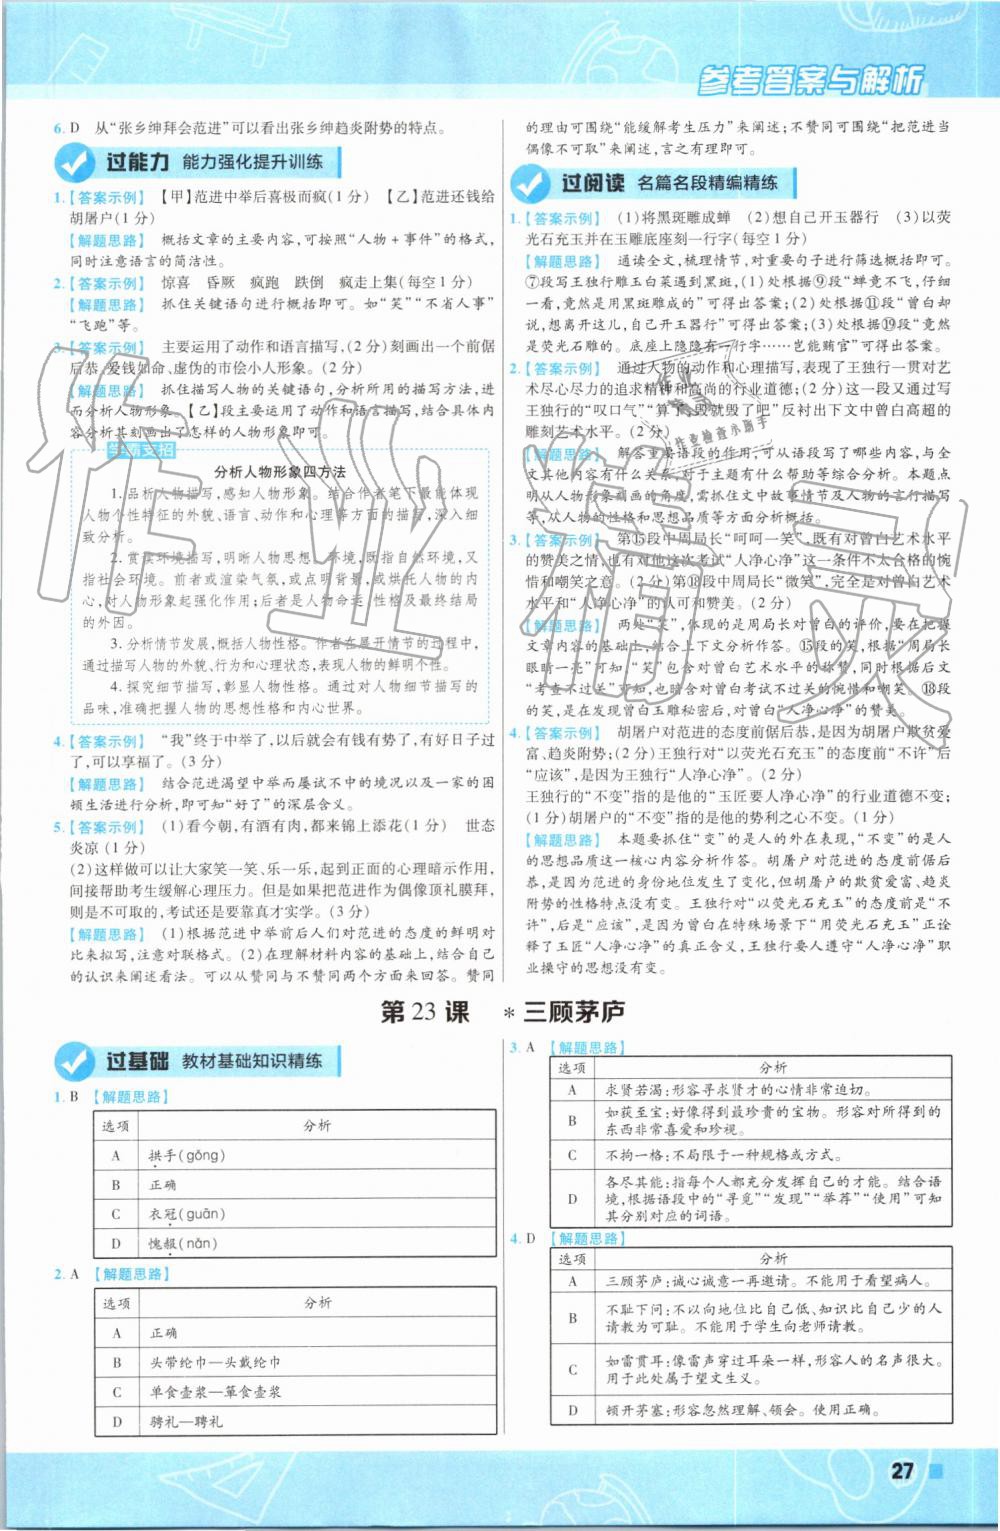 参考答案与解析
6. D 从“张乡绅拜会范进”可以看出张乡绅趋炎附势的特点。
过能力 能力强化提升训练
1.【答案示例】 【甲】范进中举后喜极而疯(1分) 【乙】范进还钱给
胡屠户(1分)
【解题思路】 概括文章的主要内容,可按照“人物+事件”的格式,
同时注意语言的简洁性。
2.【答案示例】 惊喜 昏厥 疯跑 跌倒 疯走上集(每空1分)
【解题思路】 抓住关键语句进行概括即可。如“笑”“不省人事”
“飞跑”等。
3.【答案示例】 主要运用了动作和语言描写,(2分)刻画出一个前倨
后恭、爱钱如命、虚伪的市侩小人形象。(2分)
【解题思路】 抓住描写人物的关键语句,分析所用的描写方法,进
而分析人物形象。【乙】段主要运用了动作和语言描写,结合具体内
容分析其刻画出了怎样的人物形象即可。
学霸支招
分析人物形象四方法
1.品析人物描写,感知人物形象。结合作者笔下最能体现
人物个性特征的外貌、语言、动作和心理等方面的描写,深入细
致分析。
2.赏读环境描写,明晰人物思想。环境,既指自然环境,又
指社会环境。前者或渲染气氛,或点明背景,或烘托人物的内
心,对人物形象起强化作用;后者是人物命运、性格及最终结局
的外因。
3.分析情节发展,概括人物性格。作者在展开情节的过程中,
通过描写人物的外貌、行为和心理状态,表现人物的鲜明个性。
4.探究细节描写,彰显人物性格。通过对人物细节描写的
品味,准确把握人物的思想性格和内心世界。
4.【答案示例】 “我”终于中举了,以后就会有钱有势了,有好日子过
了,可以享福了。(3分)
【解题思路】 结合范进渴望中举而屡试不中的境况以及一家的困
顿生活进行分析,即可知“好了”的深层含义。
5.【答案示例】 (1)看今朝,有酒有肉,都来锦上添花(1分) 世态
炎凉(1分)
(2)这样做可以让大家笑一笑、乐一乐,起到正面的心理暗示作用,
间接帮助考生缓解心理压力。但是如果把范进作为偶像顶礼膜拜,
则是不可取的,考试还是要靠真才实学。(3分)
【解题思路】 (1)根据范进中举前后人们对范进的态度的鲜明对
比来拟写,注意对联格式。(2)在理解材料内容的基础上,结合自己
的认识来阐述看法。可以从赞同与不赞同两个方面来回答。赞同
的理由可围绕“能缓解考生压力”来阐述;不赞同可围绕“把范进当
偶像不可取”来阐述,言之有理即可。
过阅读 名篇名段精编精练
1.【答案示例】 (1)将黑斑雕成蝉 (2)想自己开玉器行 (3)以荧
光石充玉并在玉雕底座刻一行字(每空1分)
【解题思路】 通读全文,梳理情节,对重要句子进行筛选概括即可。
⑦段写王独行雕玉白菜遇到黑斑,(1)处根据⑨段“蝉竟不飞,仔细
一看,竟然是用黑斑雕成的”可得出答案;(2)处根据⑪段“曾白却
说,想离开这儿,自己开玉器行”可得出答案;(3)处根据⑲段“竟然
是荧光石雕的。底座上隐隐有一行字……岂能贿官”可得出答案。
2.【答案示例】 通过人物的动作和心理描写,表现了王独行一贯对艺
术尽心尽力的追求精神和高尚的行业道德;(2分)这段又通过写
王独行的“叹口气”“算了,毁就毁了吧”反衬出下文中曾白高超的
雕刻艺术水平。(2分)
【解题思路】 解答重要语段的作用,可从语段写了哪些内容、与全
文其他内容有什么关系、对于主题有什么帮助等综合分析。本题点
明从人物形象刻画的角度,需抓住文中故事情节及人物的言行描写
等,从人物的性格和思想品质等方面分析概括。
3.【答案示例】 第⑮段中周局长“呵呵一笑”,既有对曾白艺术水平
的赞美之情,也有对他这次考试“人净心净”这一条不太合格的惋
惜和嘲笑之意。(2分)第⑱段中周局长“微笑”,完全是对曾白艺术
水平和“人净心净”的认可和赞美。(2分)
【解题思路】 两处“笑”,体现的是周局长对曾白的评价,要在把握
文章内容的基础上,结合上下文分析作答。⑮段的笑,根据“周局长
眼睛一亮”可知,“笑”包含对曾白艺术水平的称赞,同时根据后文
“考查不过关”可知,也暗含对曾白考试不过关的惋惜和嘲笑。⑱段
的笑,是在发现曾白玉雕秘密后,对曾白“人净心净”的赞美。
4.【答案示例】 胡屠户对范进的态度前倨后恭,是因为胡屠户欺贫爱
富、趋炎附势;(2分)王独行对“以荧光石充玉”的态度前“不许”后
“应该”,是因为王独行“人净心净”。(2分)
王独行的“不变”指的是他的“玉匠要人净心净”的行业道德不变;
(1分)胡屠户的“不变”指的是他的势利之心不变。(1分)
【解题思路】 本题要抓住“变”的是人的外在表现,“不变”的是人
的思想品质这一核心内容分析作答。胡屠户对范进的态度前倨后
恭,是因为范进的身份地位发生了变化,但胡屠户的欺贫爱富、趋炎
附势的性格特点没有变。王独行对“以荧光石充玉”的态度前是“不
许”,后是“应该”,是因为曾白在特殊场景下“用荧光石充玉”正诠
释了玉匠“人净心净”的真正含义,王独行要人遵守“人净心净”职
业操守的思想没有变。
第23课 *三顾茅庐
过基础 教材基础知识精练
1. B 【解题思路】
选项 分析
A 拱手(gǒng)
B 正确
C 衣冠(guān)
D 愧赧(nǎn)
2. A 【解题思路】
选项 分析
A 正确
B 头带纶巾—头戴纶巾
C 单食壶浆—箪食壶浆
D 骋礼—聘礼
3. A 【解题思路】
选项 分析
A 求贤若渴:形容寻求贤才的心情非常迫切。
B 如获至宝:好像得到最珍贵的宝物。形容对所得到的
东西非常喜爱和珍视。
C 不拘一格:不局限于一种规格或方式。
D 各尽其能:指每个人都充分发挥自己的才能。结合语
境,根据语段中的“寻觅”“发现”“举荐”“使用”可知
其分别对应的词语。
4. D 【解题思路】
选项 分析
A 三顾茅庐:诚心诚意一再邀请。不能用于看望病人。
B 不耻下问:不以向地位比自己低、知识比自己少的人
请教为可耻。不能用于学生向老师请教。
C 如雷贯耳:像雷声穿过耳朵一样,形容人的名声很大。
用于此处属于望文生义。
D 顿开茅塞:形容忽然理解、领会。使用正确。
27
作业精灵
作业检查小助手